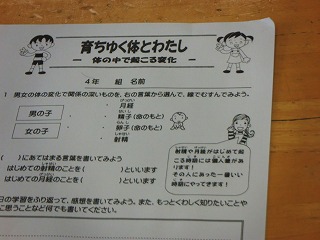 育ちゆく体とわたし
― 体の中で起こる変化 ―
4年 組 名前
1 男女の体の変化で関係の深いものを、右の言葉から選んで、線でむすんでみよう。
男の子
女の子
・月経
・精子(命のもと)
・卵子(命のもと)
・射精
( )にあてはまる言葉を書いてみよう
はじめての射精のことを( )といいます
はじめての月経のことを( )といいます
射精や月経がはじめて起
こる時期には個人差があ
ります！
その人にあった一番いい
時期にやってきます！
日の学習をふり返って、感想を書いてみよう。また、もっとくわしく知りたいことや
に思うことなど何でも書いてください。